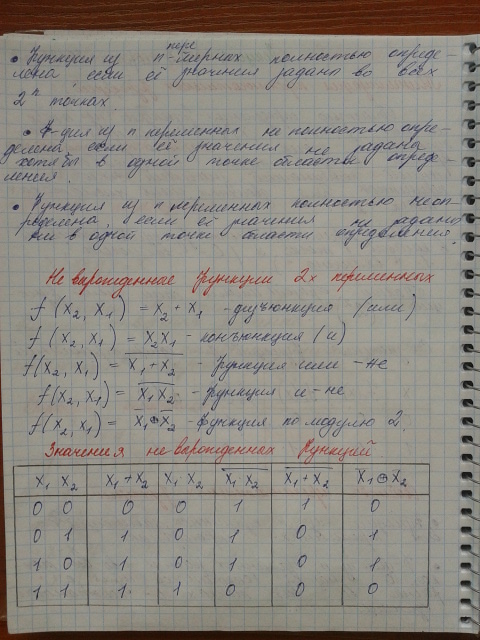 • Функция из n-переменных полностью опреде-
лена если её значения заданы во всех
2ⁿ точках.
• Ф-ция из n переменных не полностью опре-
делена, если её значения не заданы
хотя бы в одной точке области опреде-
ления.
• Функция из n переменных полностью неоп-
ределена, если её значения не заданы
ни в одной точке области определения.
Не вырожденные функции 2х переменных
f(x₂, x₁) = x₂ + x₁ - дизъюнкция (или)
f(x₂, x₁) = x₂x₁ - конъюнкция (и)
f(x₂, x₁) = x̅₁̅ ̅+̅ ̅x̅₂̅ - Функция или-не
f(x₂, x₁) = x̅₁̅ ̅x̅₂̅ - функция и-не
f(x₂, x₁) = x₁⊕x₂ - функция по модулю 2.
Значения не вырожденных функций.
x₁ x₂ x₁+x₂ x₁ x₂ x̅₁̅ ̅x̅₂̅ x̅₁̅ ̅+̅ ̅x̅₂̅ x₁⊕x₂
0 0 0 0 1 1 0
0 1 1 0 1 0 1
1 0 1 0 1 0 1
1 1 1 1 0 0 0